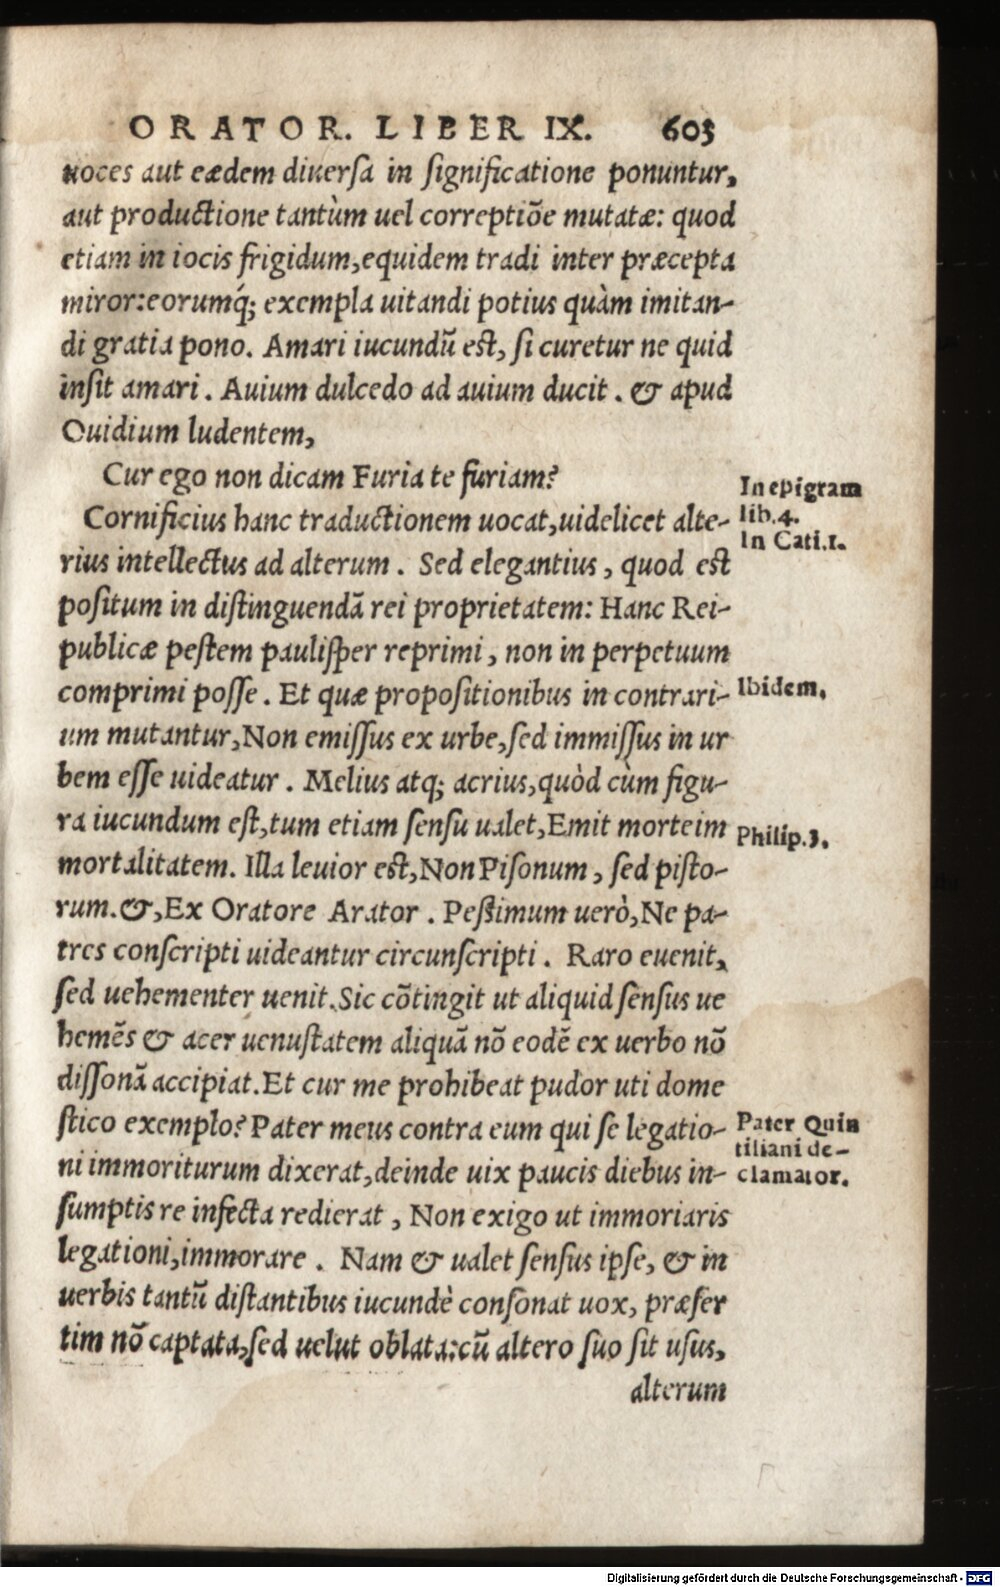 ORATOR. LIBER IX. 603
uoces aut eædem diuersa in significatione ponuntur,
aut productione tantùm uel correptiõe mutatæ: quod
etiam in iocis frigidum, equidem tradi inter præcepta
miror: eorumq́; exempla uitandi potius quàm imitan-
di gratia pono. Amari iucundũ est, si curetur ne quid
insit amari. Auium dulcedo ad auium ducit. & apud
Ouidium ludentem,
Cur ego non dicam Furia te furiam?
In epigram
lib.4.
Cornificius hanc traductionem uocat, uidelicet alte-
In Cati.1.
rius intellectus ad alterum. Sed elegantius, quod est
positum in distinguendã rei proprietatem: Hanc Rei-
publicæ pestem paulisper reprimi, non in perpetuum
comprimi posse. Et quæ propositionibus in contrari-
Ibidem.
um mutantur, Non emissus ex urbe, sed immissus in ur
bem esse uideatur. Melius atq; acrius, quòd cùm figu-
ra iucundum est, tum etiam sensu ualet, Emit morte im
Philip.3.
mortalitatem. Illa leuior est, Non Pisonum, sed pisto-
rum. &, Ex Oratore Arator. Pessimum uerò, Ne pa-
tres conscripti uideantur circunscripti. Raro euenit,
sed uehementer uenit. Sic cõtingit ut aliquid sensus ue
hemẽs & acer uenustatem aliquã nõ eodẽ ex uerbo nõ
dissonã accipiat. Et cur me prohibeat pudor uti dome
stico exemplo? Pater meus contra eum qui se legatio-
Pater Quin
tiliani de-
clamator.
ni immoriturum dixerat, deinde uix paucis diebus in-
sumptis re infecta redierat, Non exigo ut immoriaris
legationi, immorare. Nam & ualet sensus ipse, & in
uerbis tantũ distantibus iucundè consonat uox, præser
tim nõ captata, sed uelut oblata: cũ altero suo sit usus,
alterum
Digitalisierung gefördert durch die Deutsche Forschungsgemeinschaft - DFG